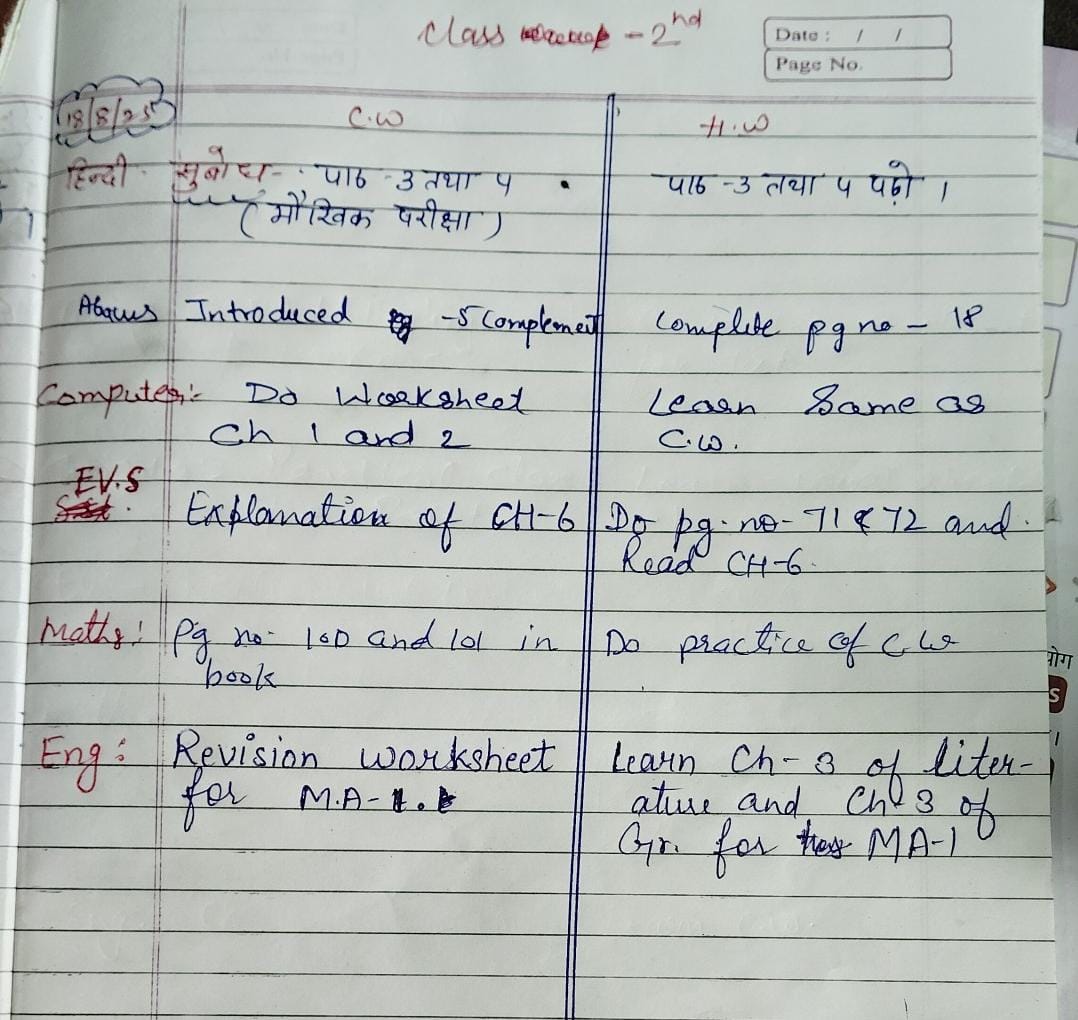 Class - 2nd
Date : / /
Page No.
18/8/25 C.W H.W
हिन्दी सुबोध - पाठ -3 तथा 5 पाठ -3 तथा 5 पढ़ो ।
( मौखिक परीक्षा )
Abacus Introduced -5 Complement Complete pg no - 18
Computer:- Do Worksheet Learn Same as
Ch 1 and 2 C.W.
EV.S
Explanation of CH-6 Do pg. no- 71 & 72 and
Read CH-6.
Maths: Pg no- 100 and 101 in Do practice of C.W
book
Eng: Revision worksheet Learn Ch- 3 of liter-
for M.A-1. ature and Ch-3 of
Gr. for MA-1
योग
S